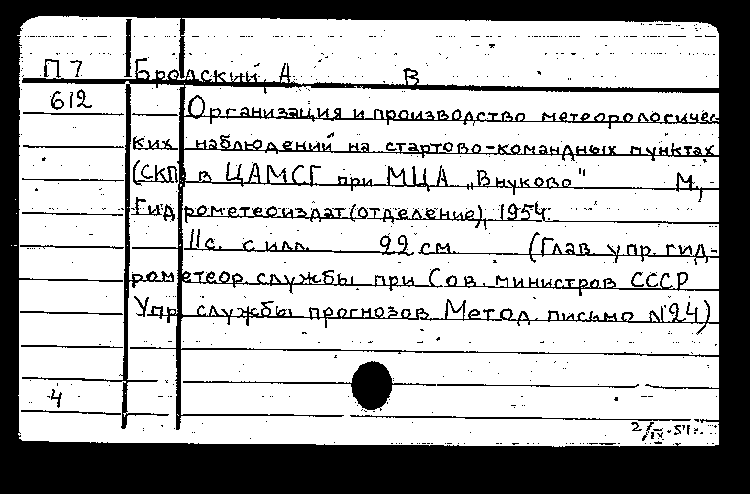 П 7 Бродский, А В
612 Организация и производство метеорологичес
ких наблюдений на стартово-командных пунктах
(СКП) в ЦАМСГ при МЦА „Внуково" М.,
Гидрометеоиздат (отделение), 1954.
11 с. с илл. 22 см. (Глав. упр. гид-
рометеор. службы при Сов. министров СССР
Упр. службы прогнозов. Метод. письмо № 24)
4
2/IX-54г.